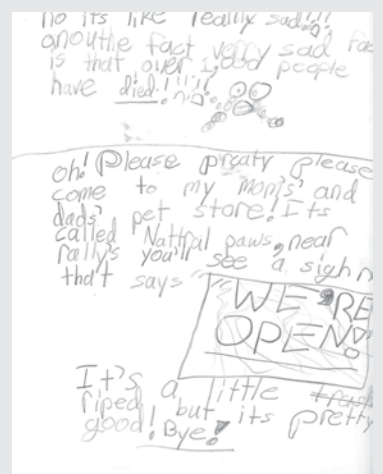 no its like really sad!!!
anouthe fact verry sad fac
is that over 1,000 people
have died!!!!
oh! Please preaty please
come to my mom's' and
dads' pet store! Its
called Natfral paws, near
rally's you'll see a sigh
that says
"WE'RE
OPEN!
It's a little
riped, but its pretty
good! Bye!